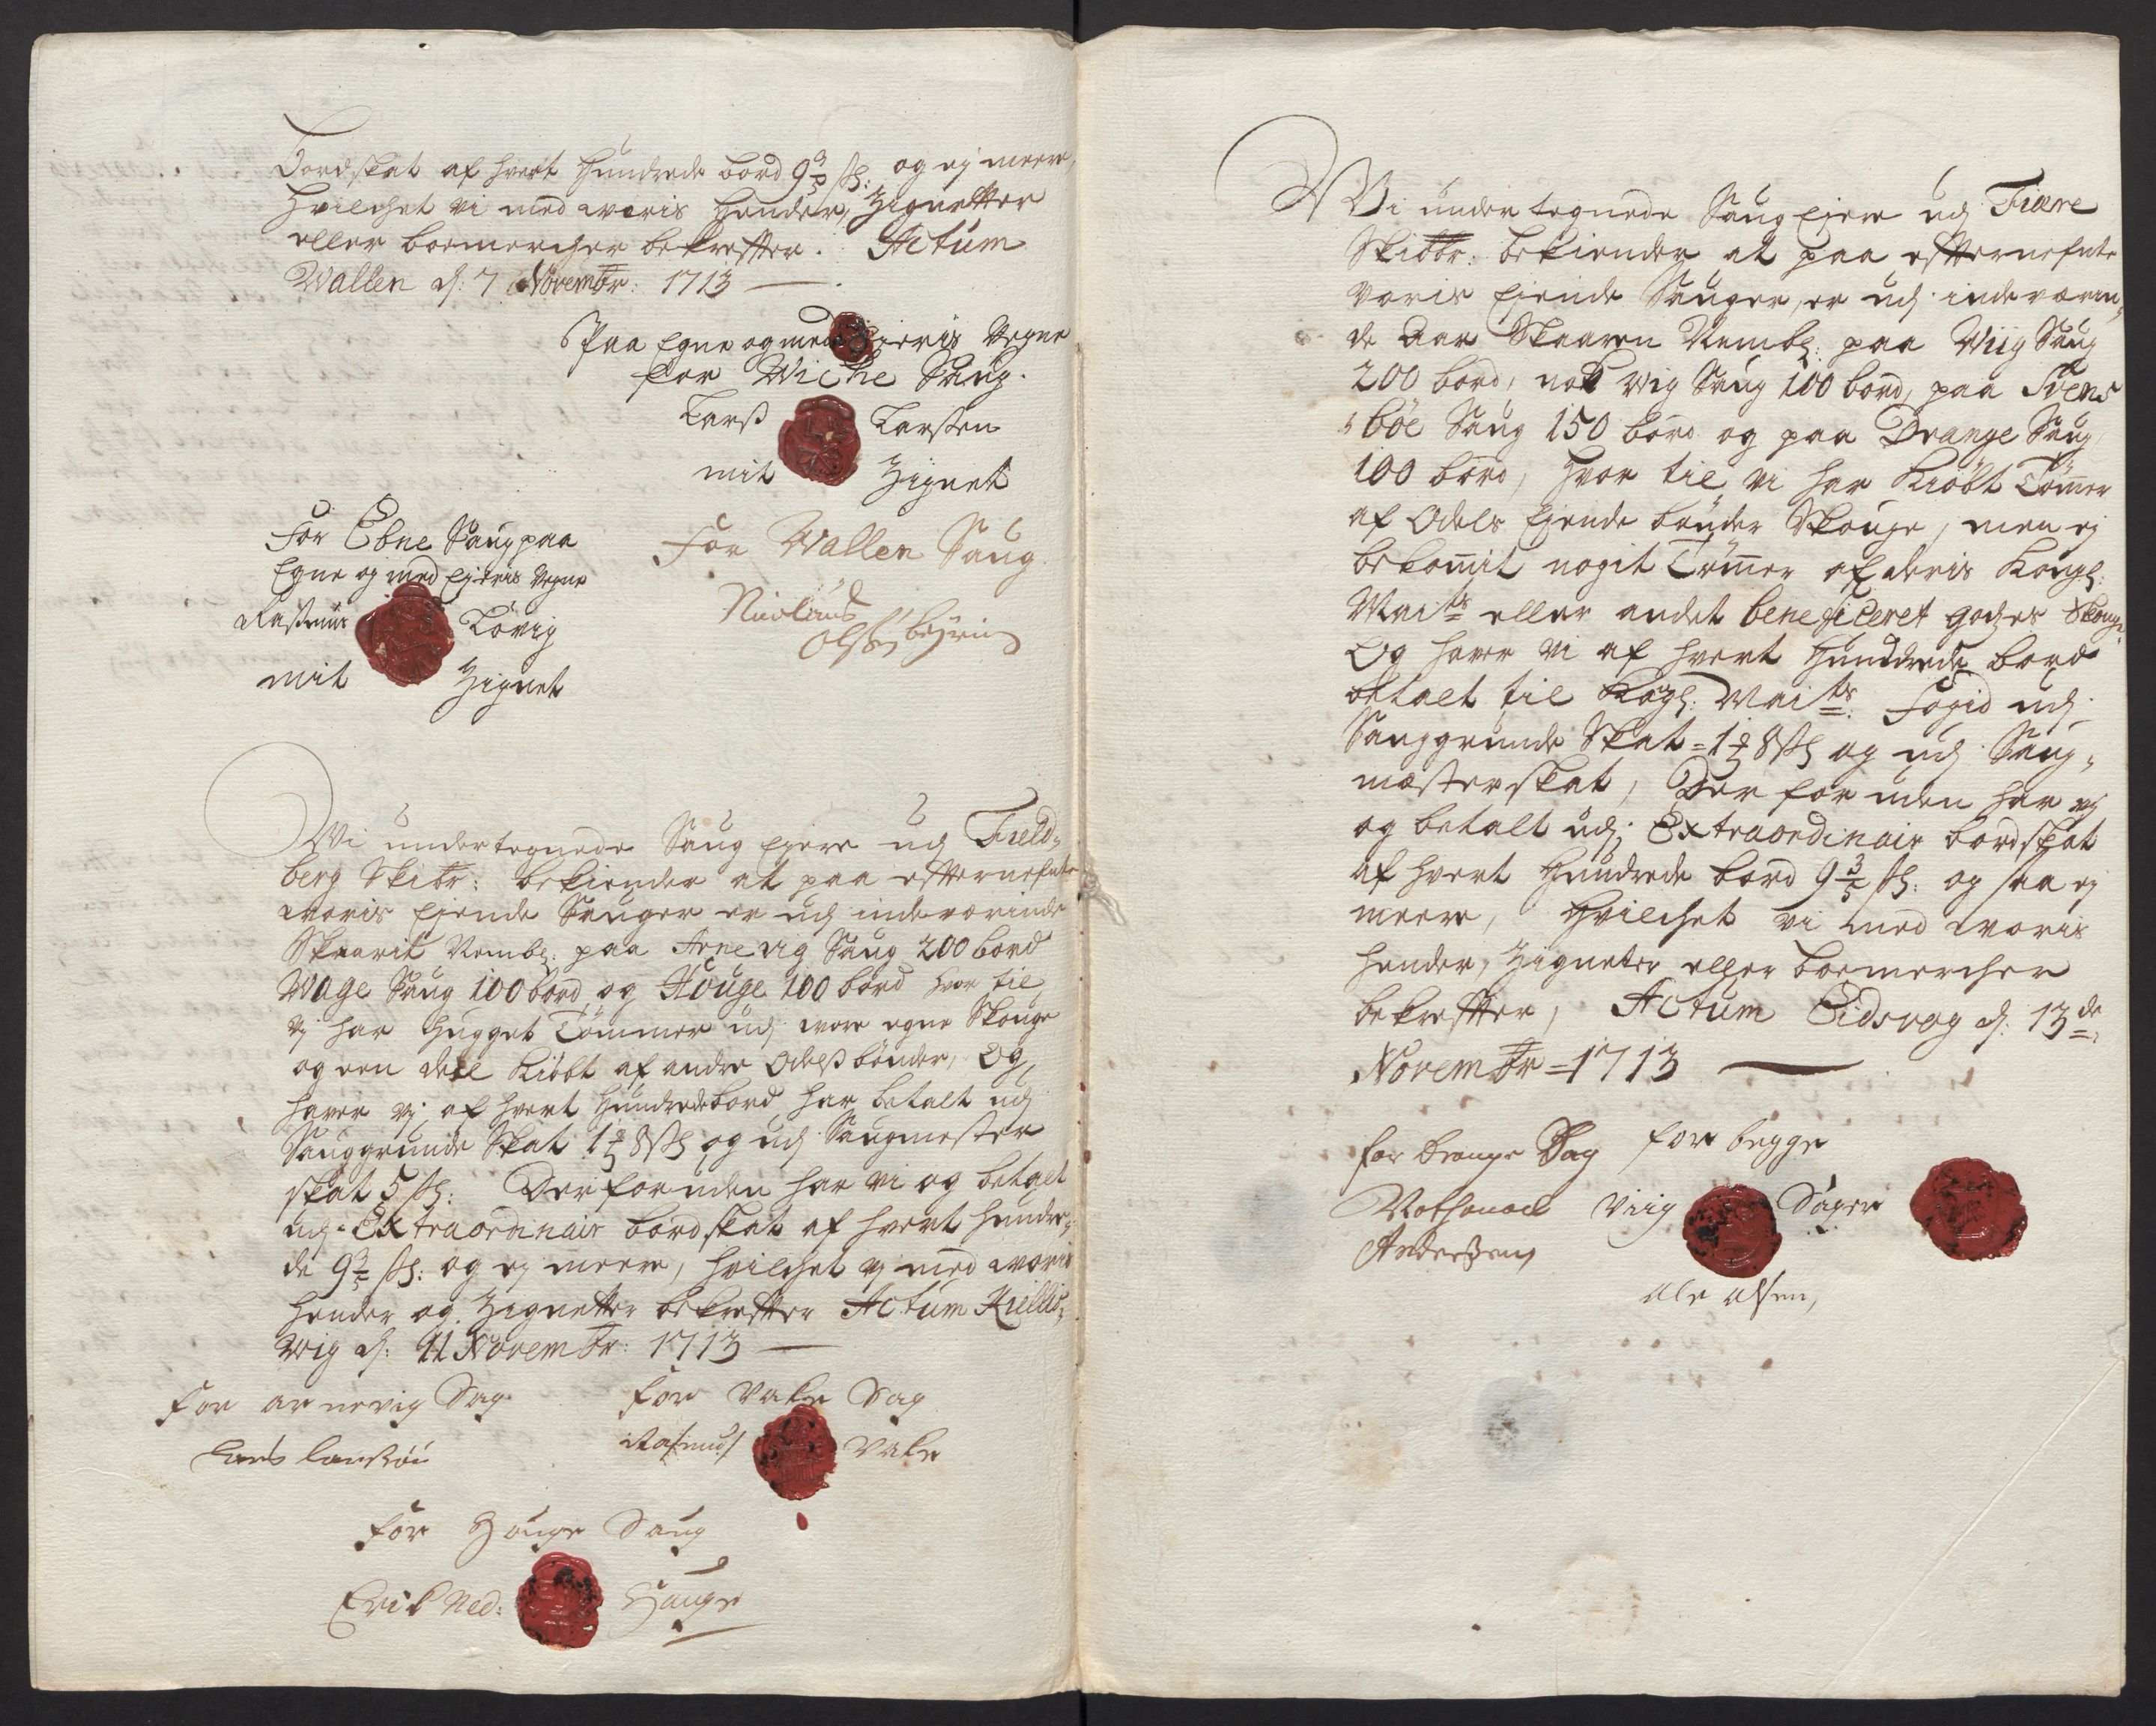 Bordskat af hvert Hundrede bord 9 3/5 ß: og ej meere,
Hvilchet vi med woris Hender, Zignetter
eller boemercher bekreffter. Actum
Wallen d: 7 Novembr: 1713
Paa Egne og med Ejeris Vegne
for Wiche Saug.
Larß Larßen
mit Zignet
For Ebne Saug paa
Egne og med Ejeris Vegne
Rasmus Løvig
mit Zignet
For Wallen Saug
Nicolaus
Olß
Wi undertegnede Saug Ejere udj Field-
berg Skibr: bekiender at paa effternefnte
woris Ejende Sauger er udj indeværinde
Skaarit Nembl: paa Arnevig Saug 200 bord
Wage Saug 100 bord og Houge 100 bord hvor til
vj har Hugget Tømmer udj wore egne Skouge
og een deel Kiøbt af andre Odelß bønder, Og
haver vj af hvert Hundrede bord har betalt udj
Sauggrunde Skat 1 8 ß og udj Saugmester
skat 5 ß: Der foruden har vi og betalt
udj Extraordinair bordskat af hvert Hundre-
de 9 3/5 ß: og ej meere, hvilchet vj med woris
Hender og Zignetter bekreffter Actum Kielles-
wig d: 11 Novembr: 1713
For arnevig Sag
Lars
for Vake Sag
Rasmus Vake
for Houge Saug
Erik Ned: Houge
Wi undertegnede Saug Ejere udj Fiære
Skibbr: bekiender at paa effternefnte
voris Ejende Sauger, er udj indeværin-
de Aar Skaaren Nembl: paa Wiig Saug
200 bord, nok Wig Saug 100 bord, paa Svens
bøe Saug 150 bord og paa Drange Saug
100 bord, hvor til vi har Kiøbt Tømer
af Odels Ejende bønder Skouge, men ej
bekomit nogit Tømer af deris Kongl:
Maits eller andet beneficeret godzes Skouge
Og haver vi af hvert Hunddrede bord
betalt til Kogl: Maits Fogid udj
Sauggrunde Skat 1 8 ß og udj Saug-
mæsterskat, Der foruden har vj
og betalt udj Extraordinair bordskat
af hvert Hundrede bord 9 3/5 ß: og saa ej
meere, Hvilchet vi med woris
hender, Zigneter eller boemercher
bekreffter, Actum Eidsvog d: 13de
Novembr 1713
for Drange Sag
Nothanael
Anderßen
for begge
Viig Sager
Ole Olsen,